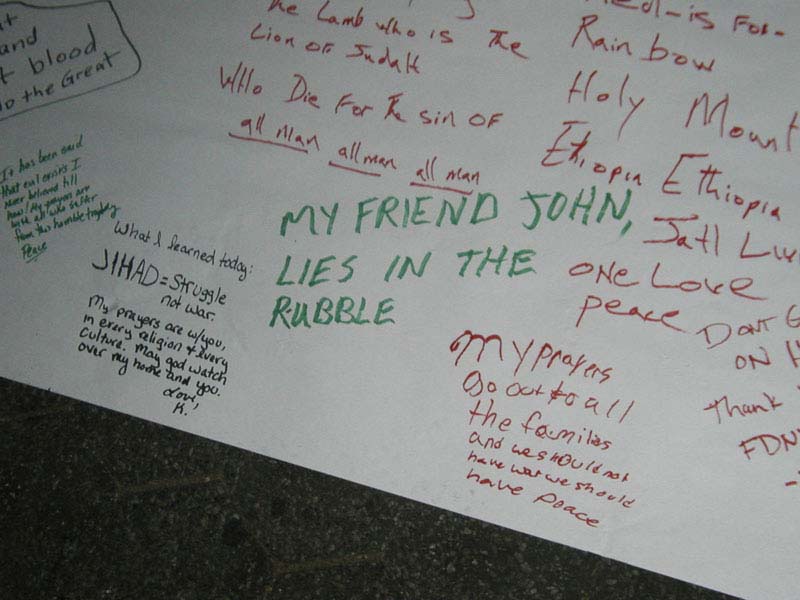 and
blood
to the Great
The Lamb who is The
Lion of Judah
Who Die For The sin of
all man all man all man
is For-
Rainbow
Holy Mount
Ethiopia Ethiopia
One Love
peace
It has been said
that evil exists I
never believed till
now! My prayers are
with all who suffer
from this horrible tragedy
Peace
What I learned today:
JIHAD = Struggle
not war.
My prayers are w/you,
in every religion & every
culture. May god watch
over my home and you.
Love,
K.
MY FRIEND JOHN,
LIES IN THE
RUBBLE
My prayers
Go out to all
the families
and we should not
have war we should
have peace
Dont G
ON H
Thank
FDN